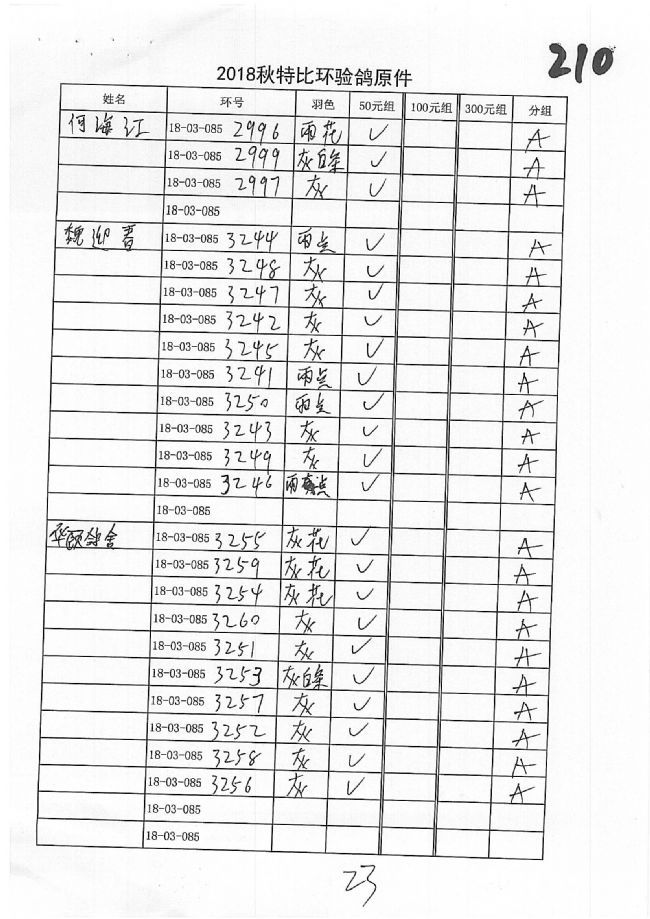 210
2018秋特比环验鸽原件
姓名 环号 羽色 50元组 100元组 300元组 分组
何海江 18-03-085 2996 雨花 ✓ A
18-03-085 2999 灰白条 ✓ A
18-03-085 2997 灰 ✓ A
18-03-085
魏迎春 18-03-085 3244 雨点 ✓ A
18-03-085 3248 灰 ✓ A
18-03-085 3247 灰 ✓ A
18-03-085 3242 灰 ✓ A
18-03-085 3245 灰 ✓ A
18-03-085 3241 雨点 ✓ A
18-03-085 3250 雨点 ✓ A
18-03-085 3243 灰 ✓ A
18-03-085 3249 灰 ✓ A
18-03-085 3246 雨点 ✓ A
18-03-085
华颐鸽舍 18-03-085 3255 灰花 ✓ A
18-03-085 3259 灰花 ✓ A
18-03-085 3254 灰花 ✓ A
18-03-085 3260 灰 ✓ A
18-03-085 3251 灰 ✓ A
18-03-085 3253 灰白条 ✓ A
18-03-085 3257 灰 ✓ A
18-03-085 3252 灰 ✓ A
18-03-085 3258 灰 ✓ A
18-03-085 3256 灰 ✓ A
18-03-085
18-03-085
23